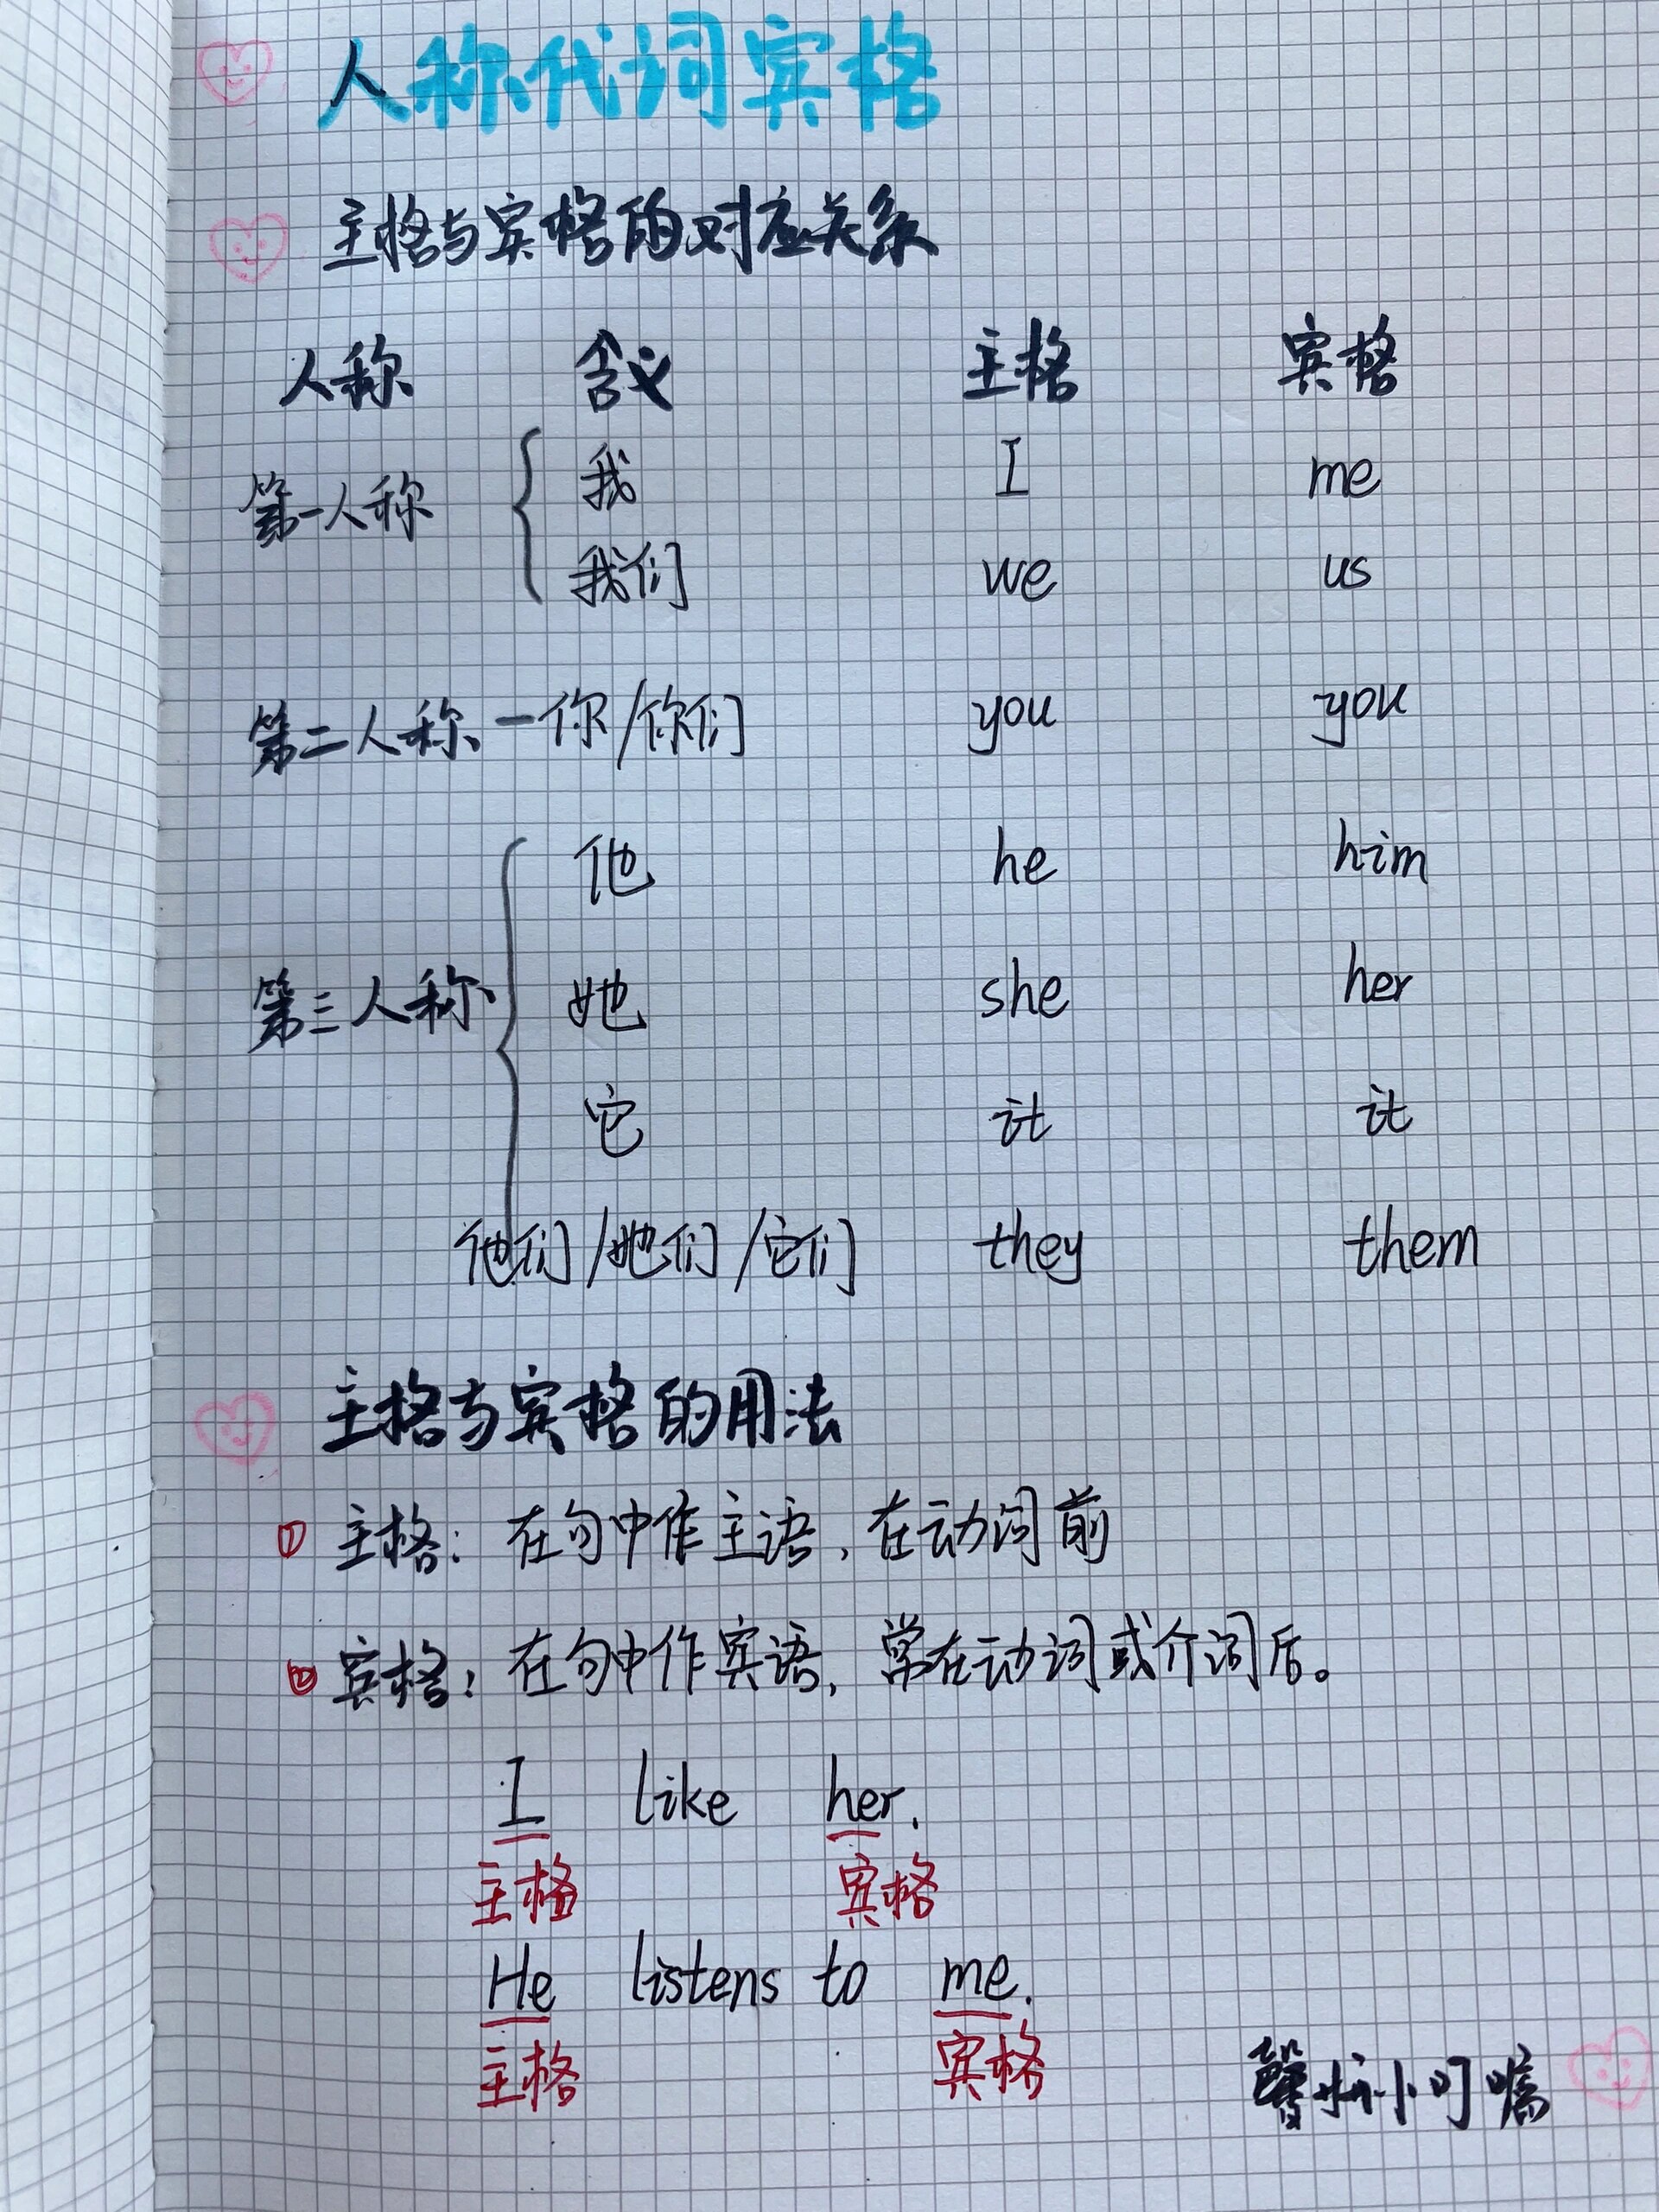 人称代词宾格
主格与宾格的对应关系
人称 含义 主格 宾格
第一人称 我 I me
我们 we us
第二人称 — 你/你们 you you
他 he him
第三人称 她 she her
它 it it
他们/她们/它们 they them
主格与宾格的用法
① 主格：在句中作主语，在动词前
② 宾格：在句中作宾语，常在动词或介词后。
I like her.
主格 宾格
He listens to me.
主格 宾格
小叮嘱